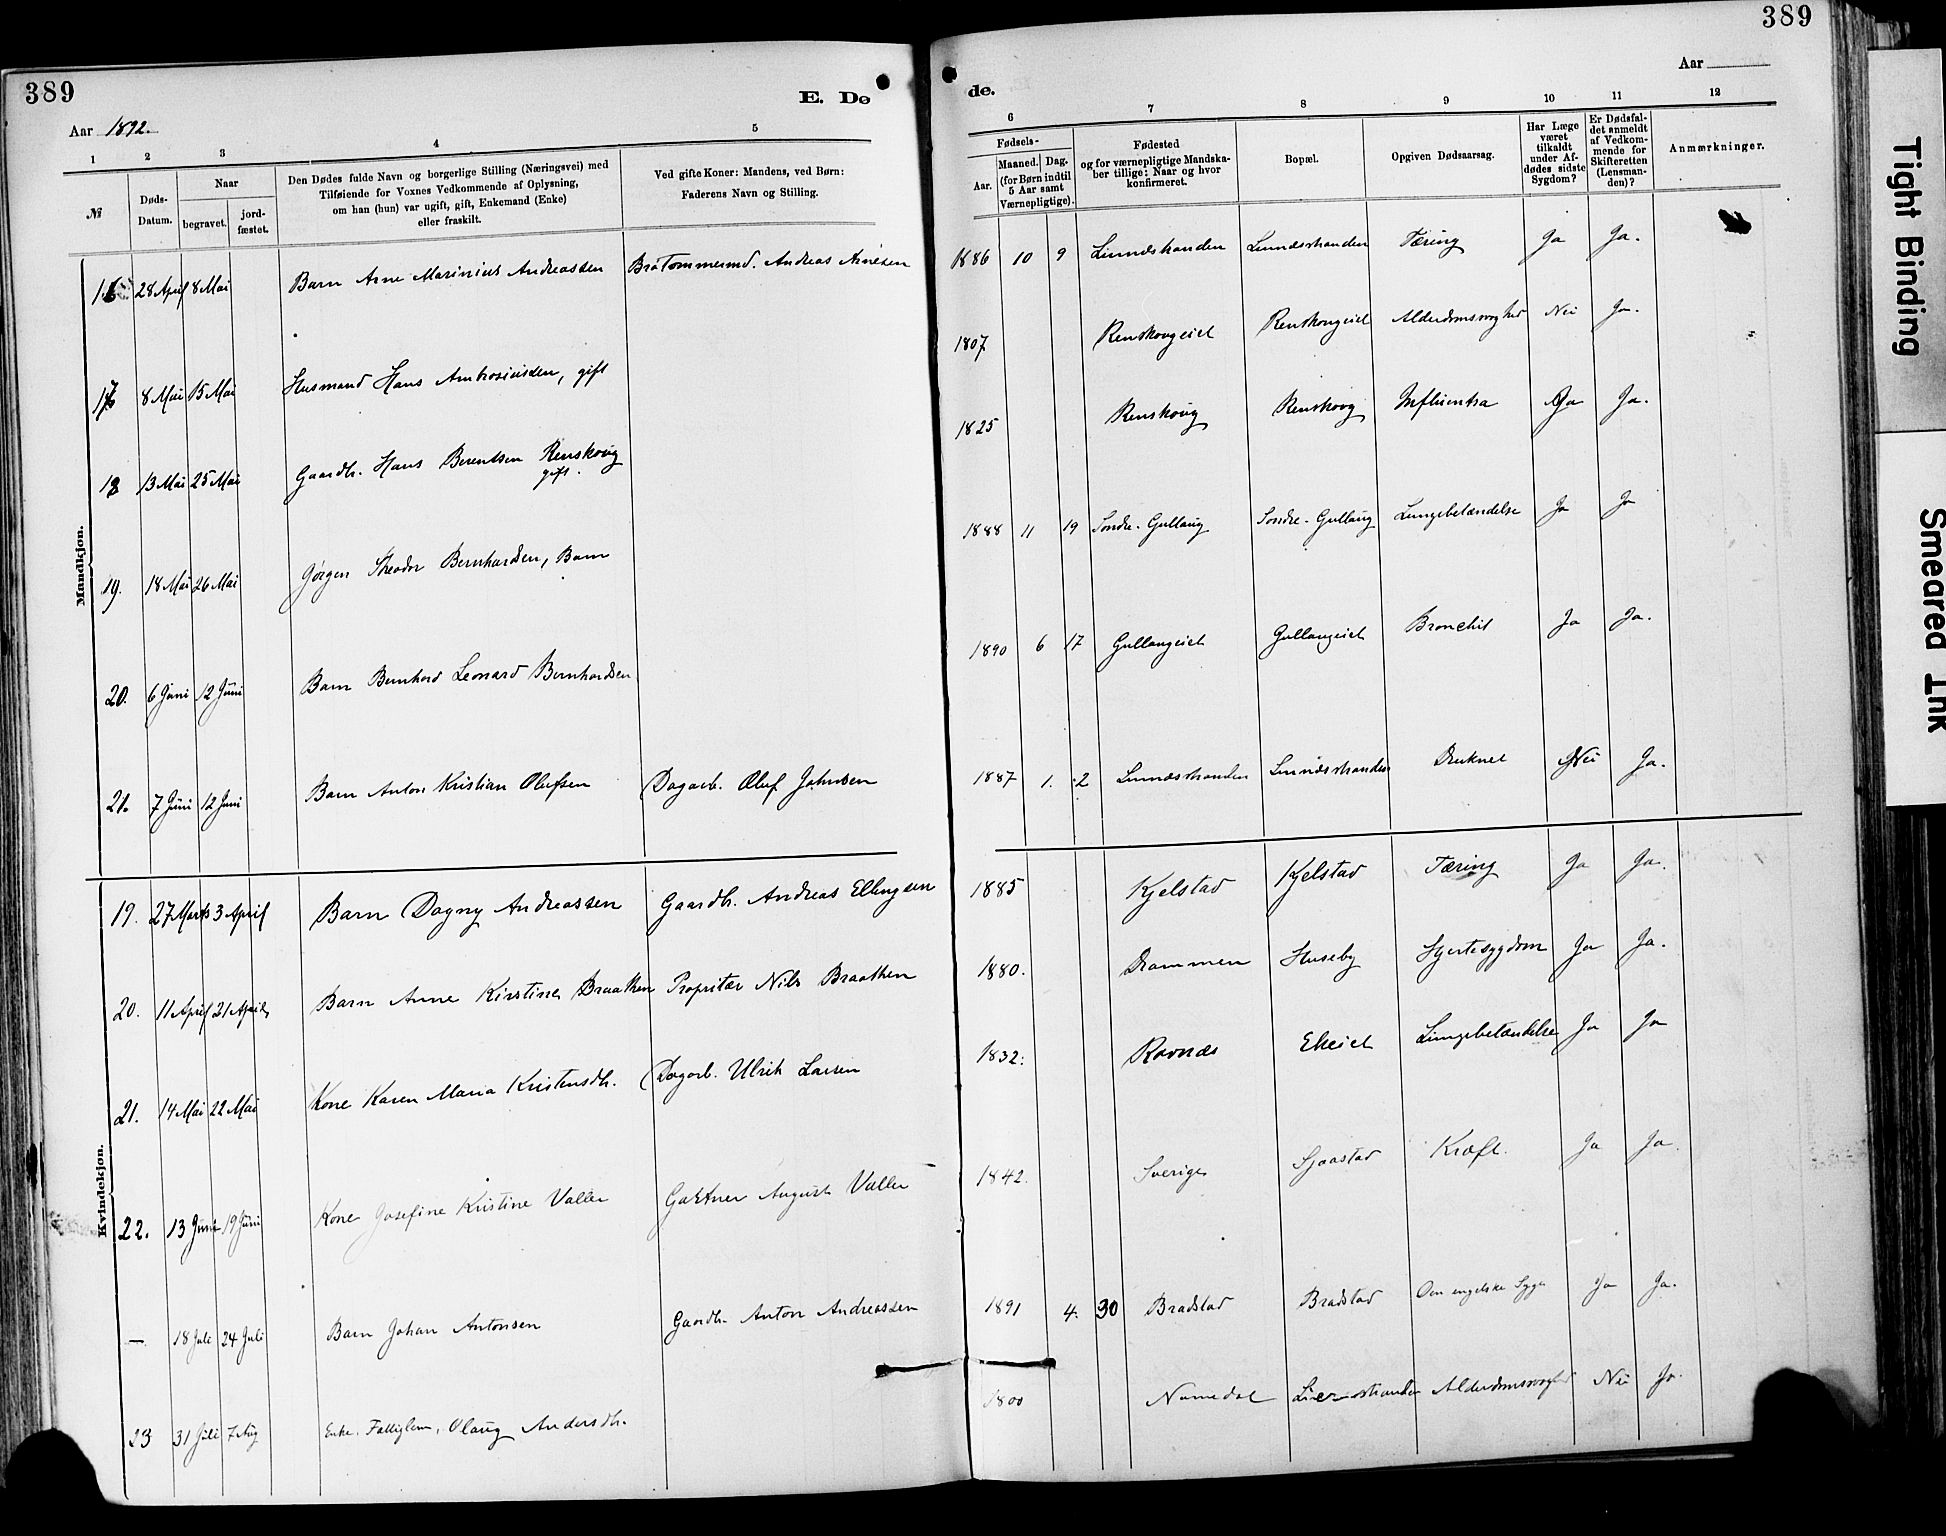 389
389
E. Dø
de.
Aar 1892.
Aar
1 2 3 4 5
6 7 8 9 10 11 12
№
Døds-Datum.
Naar
begravet.
jord-fæstet.
Den Dødes fulde Navn og borgerlige Stilling (Næringsvei) med
Tilføiende for Voxnes Vedkommende af Oplysning,
om han (hun) var ugift, gift, Enkemand (Enke)
eller fraskilt.
Ved gifte Koner: Mandens, ved Børn:
Faderens Navn og Stilling.
Fødsels-
Aar.
Maaned. Dag.
(for Børn indtil
5 Aar samt
Værnepligtige).
Fødested
og for værnepligtige Mandska-
ber tillige: Naar og hvor
konfirmeret.
Bopæl.
Opgiven Dødsaarsag.
Har Læge
været
tilkaldt
under Af-
dødes sidste
Sygdom?
Er Dødsfal-
det anmeldt
af Vedkom-
mende for
Skifteretten
(Lensman-
den)?
Anmærkninger.
Mandkjøn.
16 28 April 8 Mai Barn Arne Marinius Andreassen Andreas Arnesen 1886 10 9 Linnesstranden Linnesstranden Tæring Ja Ja.
17 8 Mai 15 Mai Husmand Hans Ambrosiussen, gift 1807 Renskougeiet Renskougeiet Alderdomssvaghed Nei Ja.
18 13 Mai 25 Mai Gaardb. Hans Berentsen Renskoug
gift. 1825 Renskoug Renskoug Influentsa Ja Ja.
19. 18 Mai 26 Mai Jørgen Theodor Bernhardsen, Barn 1888 11 19 Søndre-Gullaug Søndre-Gullaug Lungebetændelse Ja Ja
20. 6 Juni 12 Juni Barn Bernhard Leonard Bernhardsen 1890 6 17 Gullaugeiet Gullaugeiet Bronchit Ja Ja.
21. 7 Juni 12 Juni Barn Anton Kristian Olufsen Dagarb. Oluf Johnsen 1887 1. 2 Linnesstranden Linnesstranden Druknet Nei Ja.
Kvindekjøn.
19. 27 Marts 3 April Barn Dagny Andreassen Gaardb. Andreas Ellingsen 1885 Kjelstad Kjelstad Tæring Ja Ja.
20. 11 April 21 April Barn Anne Kirstine Braathen Propritær Nils Braathen 1880. Drammen Huseby Hjertesygdom Ja Ja.
21. 14 Mai 22 Mai Kone Karen Maria Kristensdt. Dagarb. Ulrik Larsen 1832. Ravnæs Ekeiet Lungebetændelse Ja Ja
22. 13 Juni 19 Juni Kone Josefine Kristine Valler Gartner August Valler 1842. Sverige Sjaastad Kræft. Ja Ja.
— 18 Juli 24 Juli Barn Johan Antonsen Gaardb. Anton Andreassen 1891 4. 30 Bradstad Bradstad Den engelske Syge Ja Ja.
23 31 Juli 7 Aug Enke. Fattiglem, Olaug Andersdt. 1800 Numedal Lierstranden Alderdomssvaghed Nei Ja.
Tight Binding
Smeared Ink